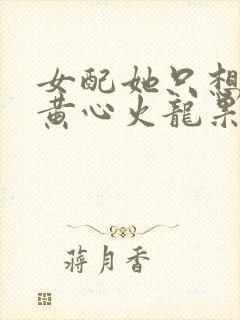 女配她只想
黄心火龍果
蔣月香